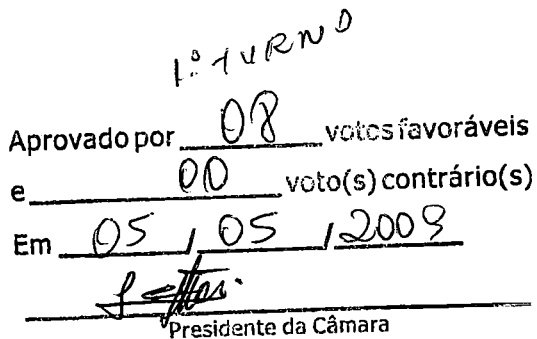 1.º TURNO
Aprovado por 08 votos favoráveis
e 00 voto(s) contrário(s)
Em 05 / 05 / 2009
Presidente da Câmara